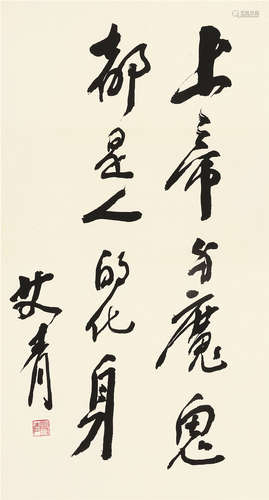 上帝与魔鬼
都是人的化身
艾青